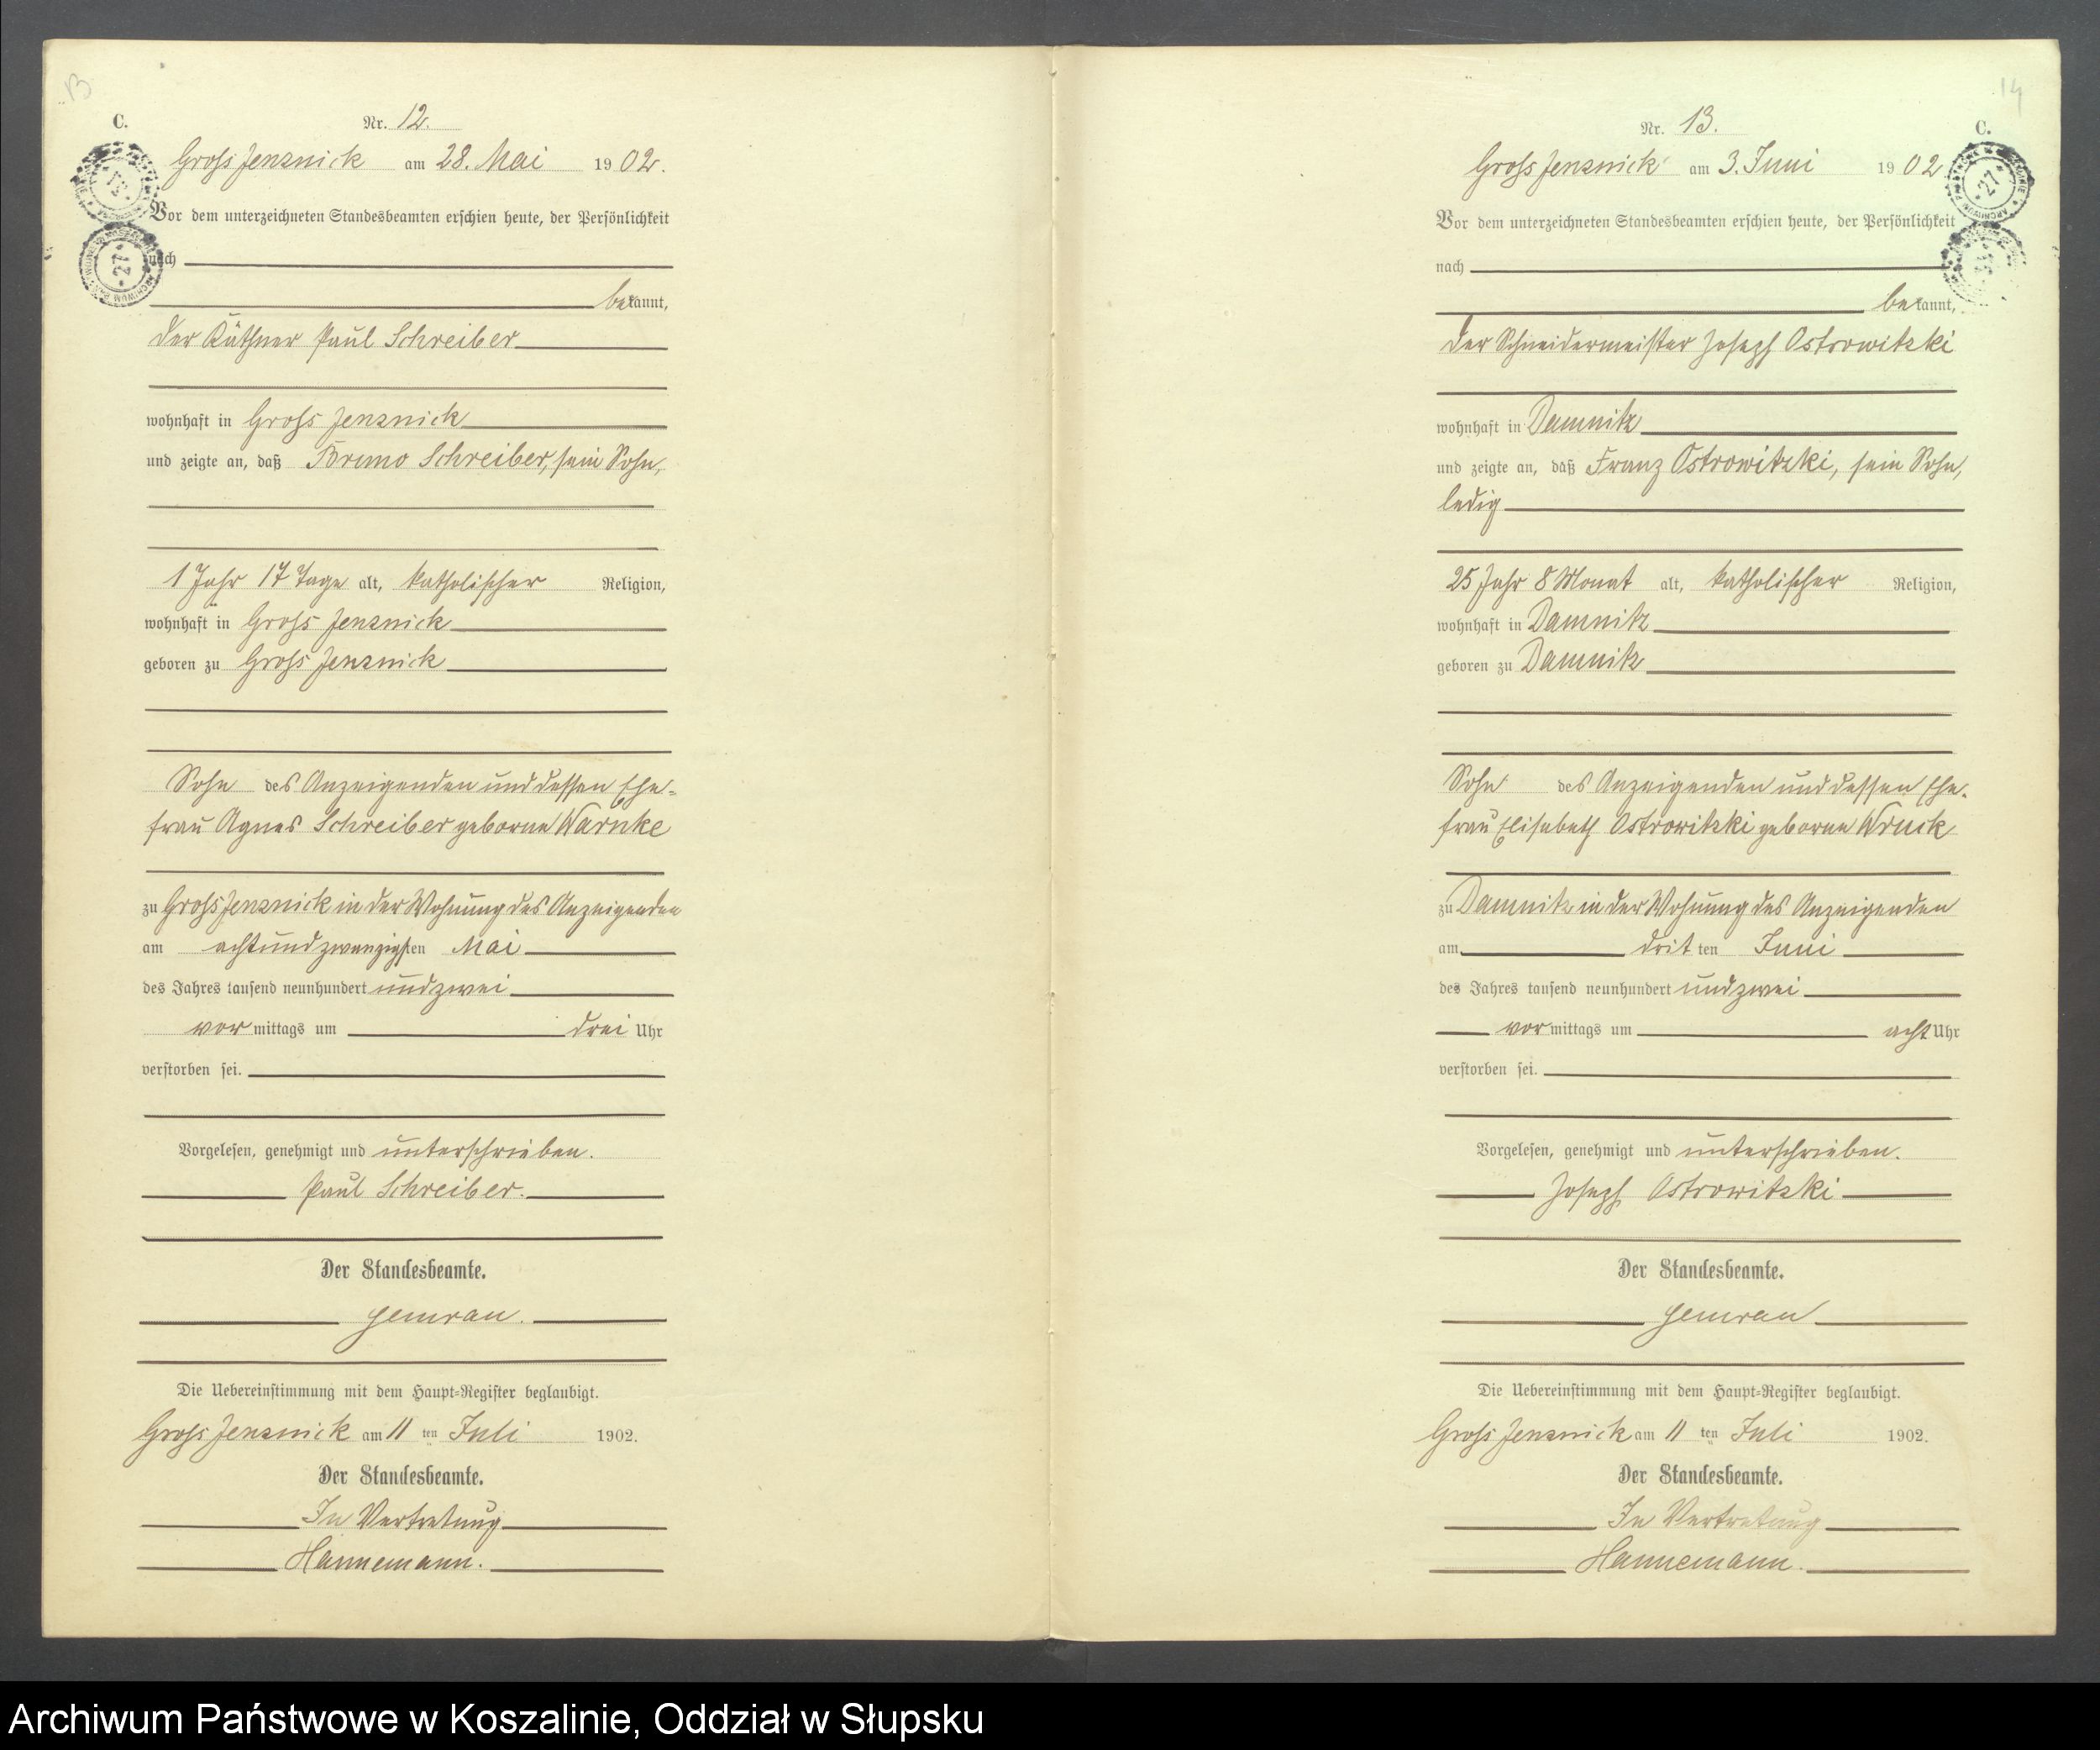 13
C.
Nr. 12.
Groß Jenznick am 28. Mai 1902.
Vor dem unterzeichneten Standesbeamten erschien heute, der Persönlichkeit
nach
bekannt,
der Käthner Paul Schreiber
wohnhaft in Groß Jenznick
und zeigte an, daß Bruno Schreiber, sein Sohn,
1 Jahr 17 Tage alt, katholischer Religion,
wohnhaft in Groß Jenznick
geboren zu Groß Jenznick
Sohn des Anzeigenden und dessen Ehe-
frau Agnes Schreiber geborne Warnke
zu Groß Jenznick in der Wohnung des Anzeigenden
am achtundzwanzigsten Mai
des Jahres tausend neunhundert und zwei
vormittags um drei Uhr
verstorben sei.
Vorgelesen, genehmigt und unterschrieben.
Paul Schreiber.
Der Standesbeamte.
Gemrau.
Die Uebereinstimmung mit dem Haupt-Register beglaubigt.
Groß Jenznick am 11ten Juli 1902.
Der Standesbeamte.
In Vertretung
Hannemann.
14
Nr. 13.
C.
Groß Jenznick am 3. Juni 1902
27
Vor dem unterzeichneten Standesbeamten erschien heute, der Persönlichkeit
nach
bekannt,
der Schneidermeister Joseph Ostrowitzki
wohnhaft in Damnitz
und zeigte an, daß Franz Ostrowitzki, sein Sohn,
ledig
25 Jahr 8 Monat alt, katholischer Religion,
wohnhaft in Damnitz
geboren zu Damnitz
Sohn des Anzeigenden und dessen Ehe-
frau Elisabeth Ostrowitzki geborne Wruck
zu Damnitz in der Wohnung des Anzeigenden
am dritten Juni
des Jahres tausend neunhundert und zwei
vormittags um acht Uhr
verstorben sei.
Vorgelesen, genehmigt und unterschrieben.
Joseph Ostrowitzki
Der Standesbeamte.
Gemrau
Die Uebereinstimmung mit dem Haupt-Register beglaubigt.
Groß Jenznick am 11ten Juli 1902.
Der Standesbeamte.
In Vertretung
Hannemann.
Archiwum Państwowe w Koszalinie, Oddział w Słupsku